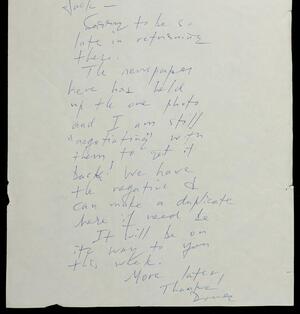 Jack —
Sorry to be so
late in returning
these.
The newspaper
here has held
up the one photo
and I am still
"negotiating" with
them to get it
back! We have
the negative &
can make a duplicate
here if need be
It will be on
its way to you
this week.
More later,
Thanks,